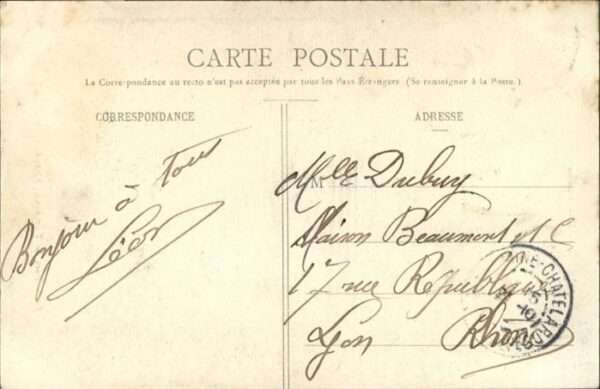 CARTE POSTALE
La Correspondance au recto n'est pas acceptée par tous les Pays Étrangers. (Se renseigner à la Poste.)
CORRESPONDANCE
ADRESSE
Bonjour à Tous
Léon
Mlle Dubuy
Maison Beaumont et C
17 rue République
Lyon Rhône
NE-CHATELARD